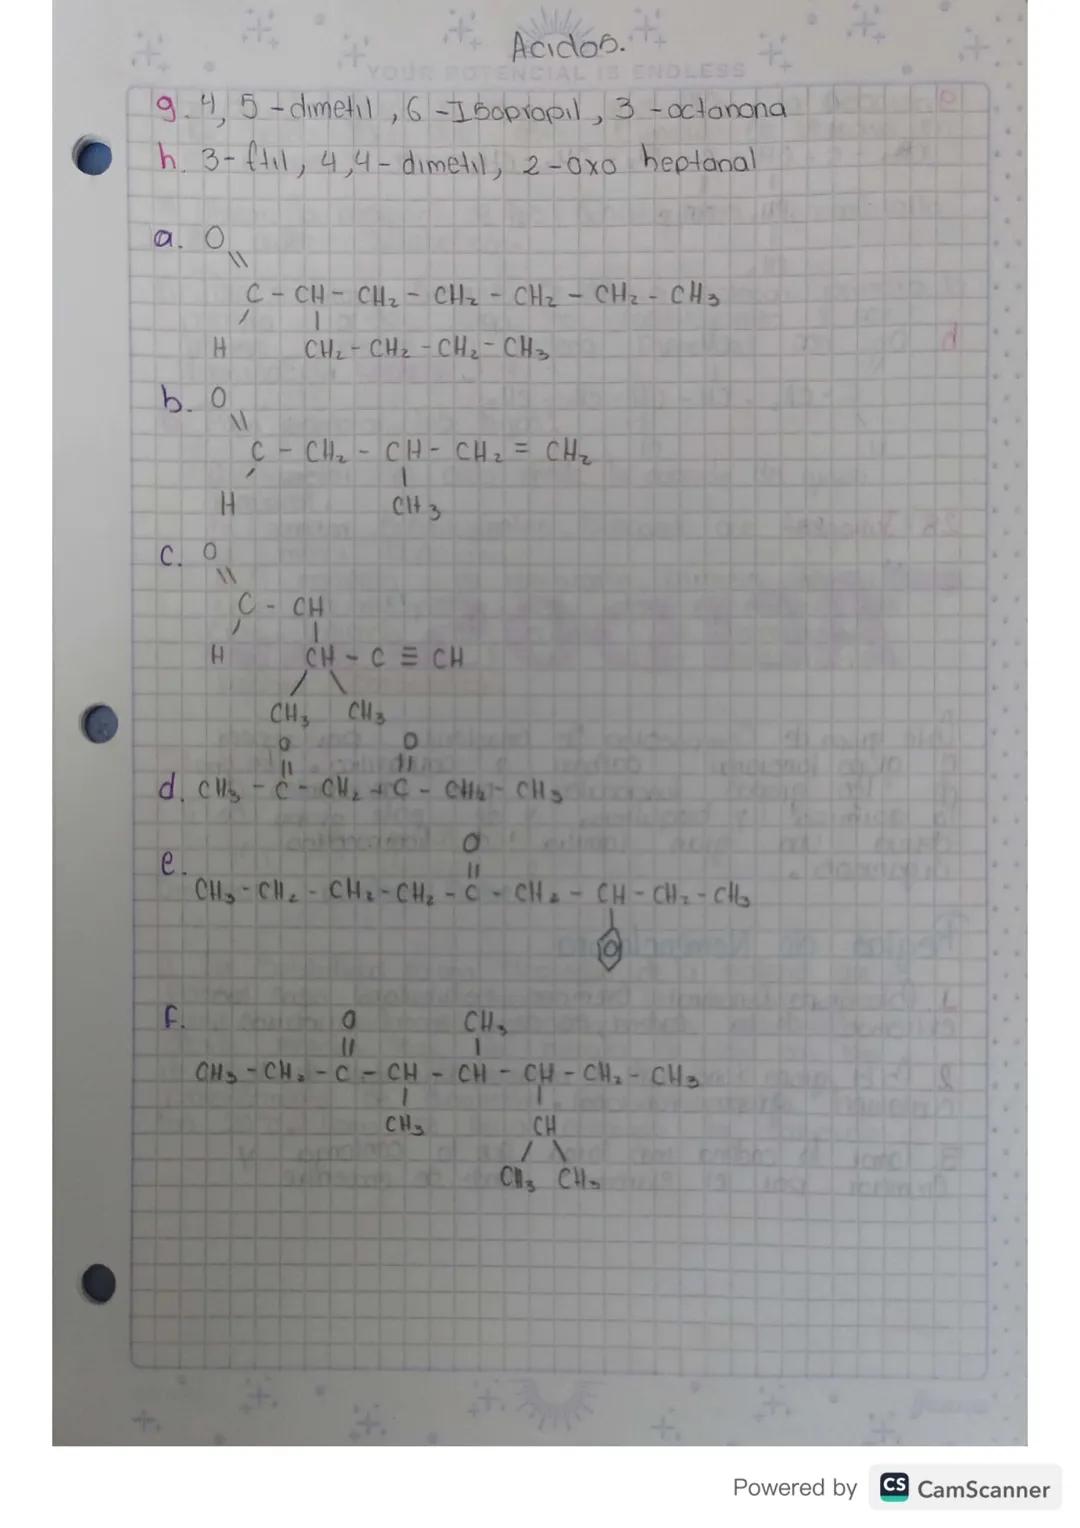 Acidos.
YOUR POTENCIAL IS ENDLESS
g. 4, 5 - dimetil, 6 - Isopropil, 3 - octanona
h. 3 - Etil, 4,4 - dimetil, 2 - oxo heptanal
a. O
\\
C - CH - CH₂ - CH₂ - CH₂ - CH₂ - CH₃
/ |
H CH₂ - CH₂ - CH₂ - CH₃
b. O
\\
C - CH₂ - CH - CH₂ = CH₂
/ |
H CH₃
c. O
\\
C - CH
/ |
H CH - C ≡ CH
/ \
CH₃ CH₃
O O
|| ||
d. CH₃ - C - CH₂ - C - CH₂ - CH₃
O
e. ||
CH₃ - CH₂ - CH₂ - CH₂ - C - CH₂ - CH - CH₂ - CH₃
|
f. O CH₃
|| |
CH₃ - CH₂ - C - CH - CH - CH - CH₂ - CH₃
| |
CH₃ CH
/ \
CH₃ CH₃
Powered by CS CamScanner